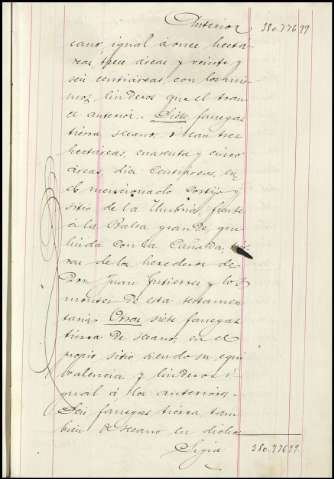 Anterior 380.776.99
cano, igual á once hectá-
reas, tres areas y veinte y
seis centiareas, con los mis-
mos linderos que el tran-
ce anterior. Siete fanegas
tierra secano, ó sean tres
hectáreas, cuarenta y cinco
áreas, diez centiáreas, en
el mencionado cortijo y
sitio de la frente
á la Balsa grande, que
linda con la Cañada,
de los herederos de
Don Juan Gutierrez y los
montes de esta testamen-
taría. Otras siete fanegas
tierra de secano en el
propio sitio siendo su equi-
valencia y linderos i-
gual á los anteriores.
Seis fanegas tierra tam-
bien de secano en dicho
Sigue 380.776.99